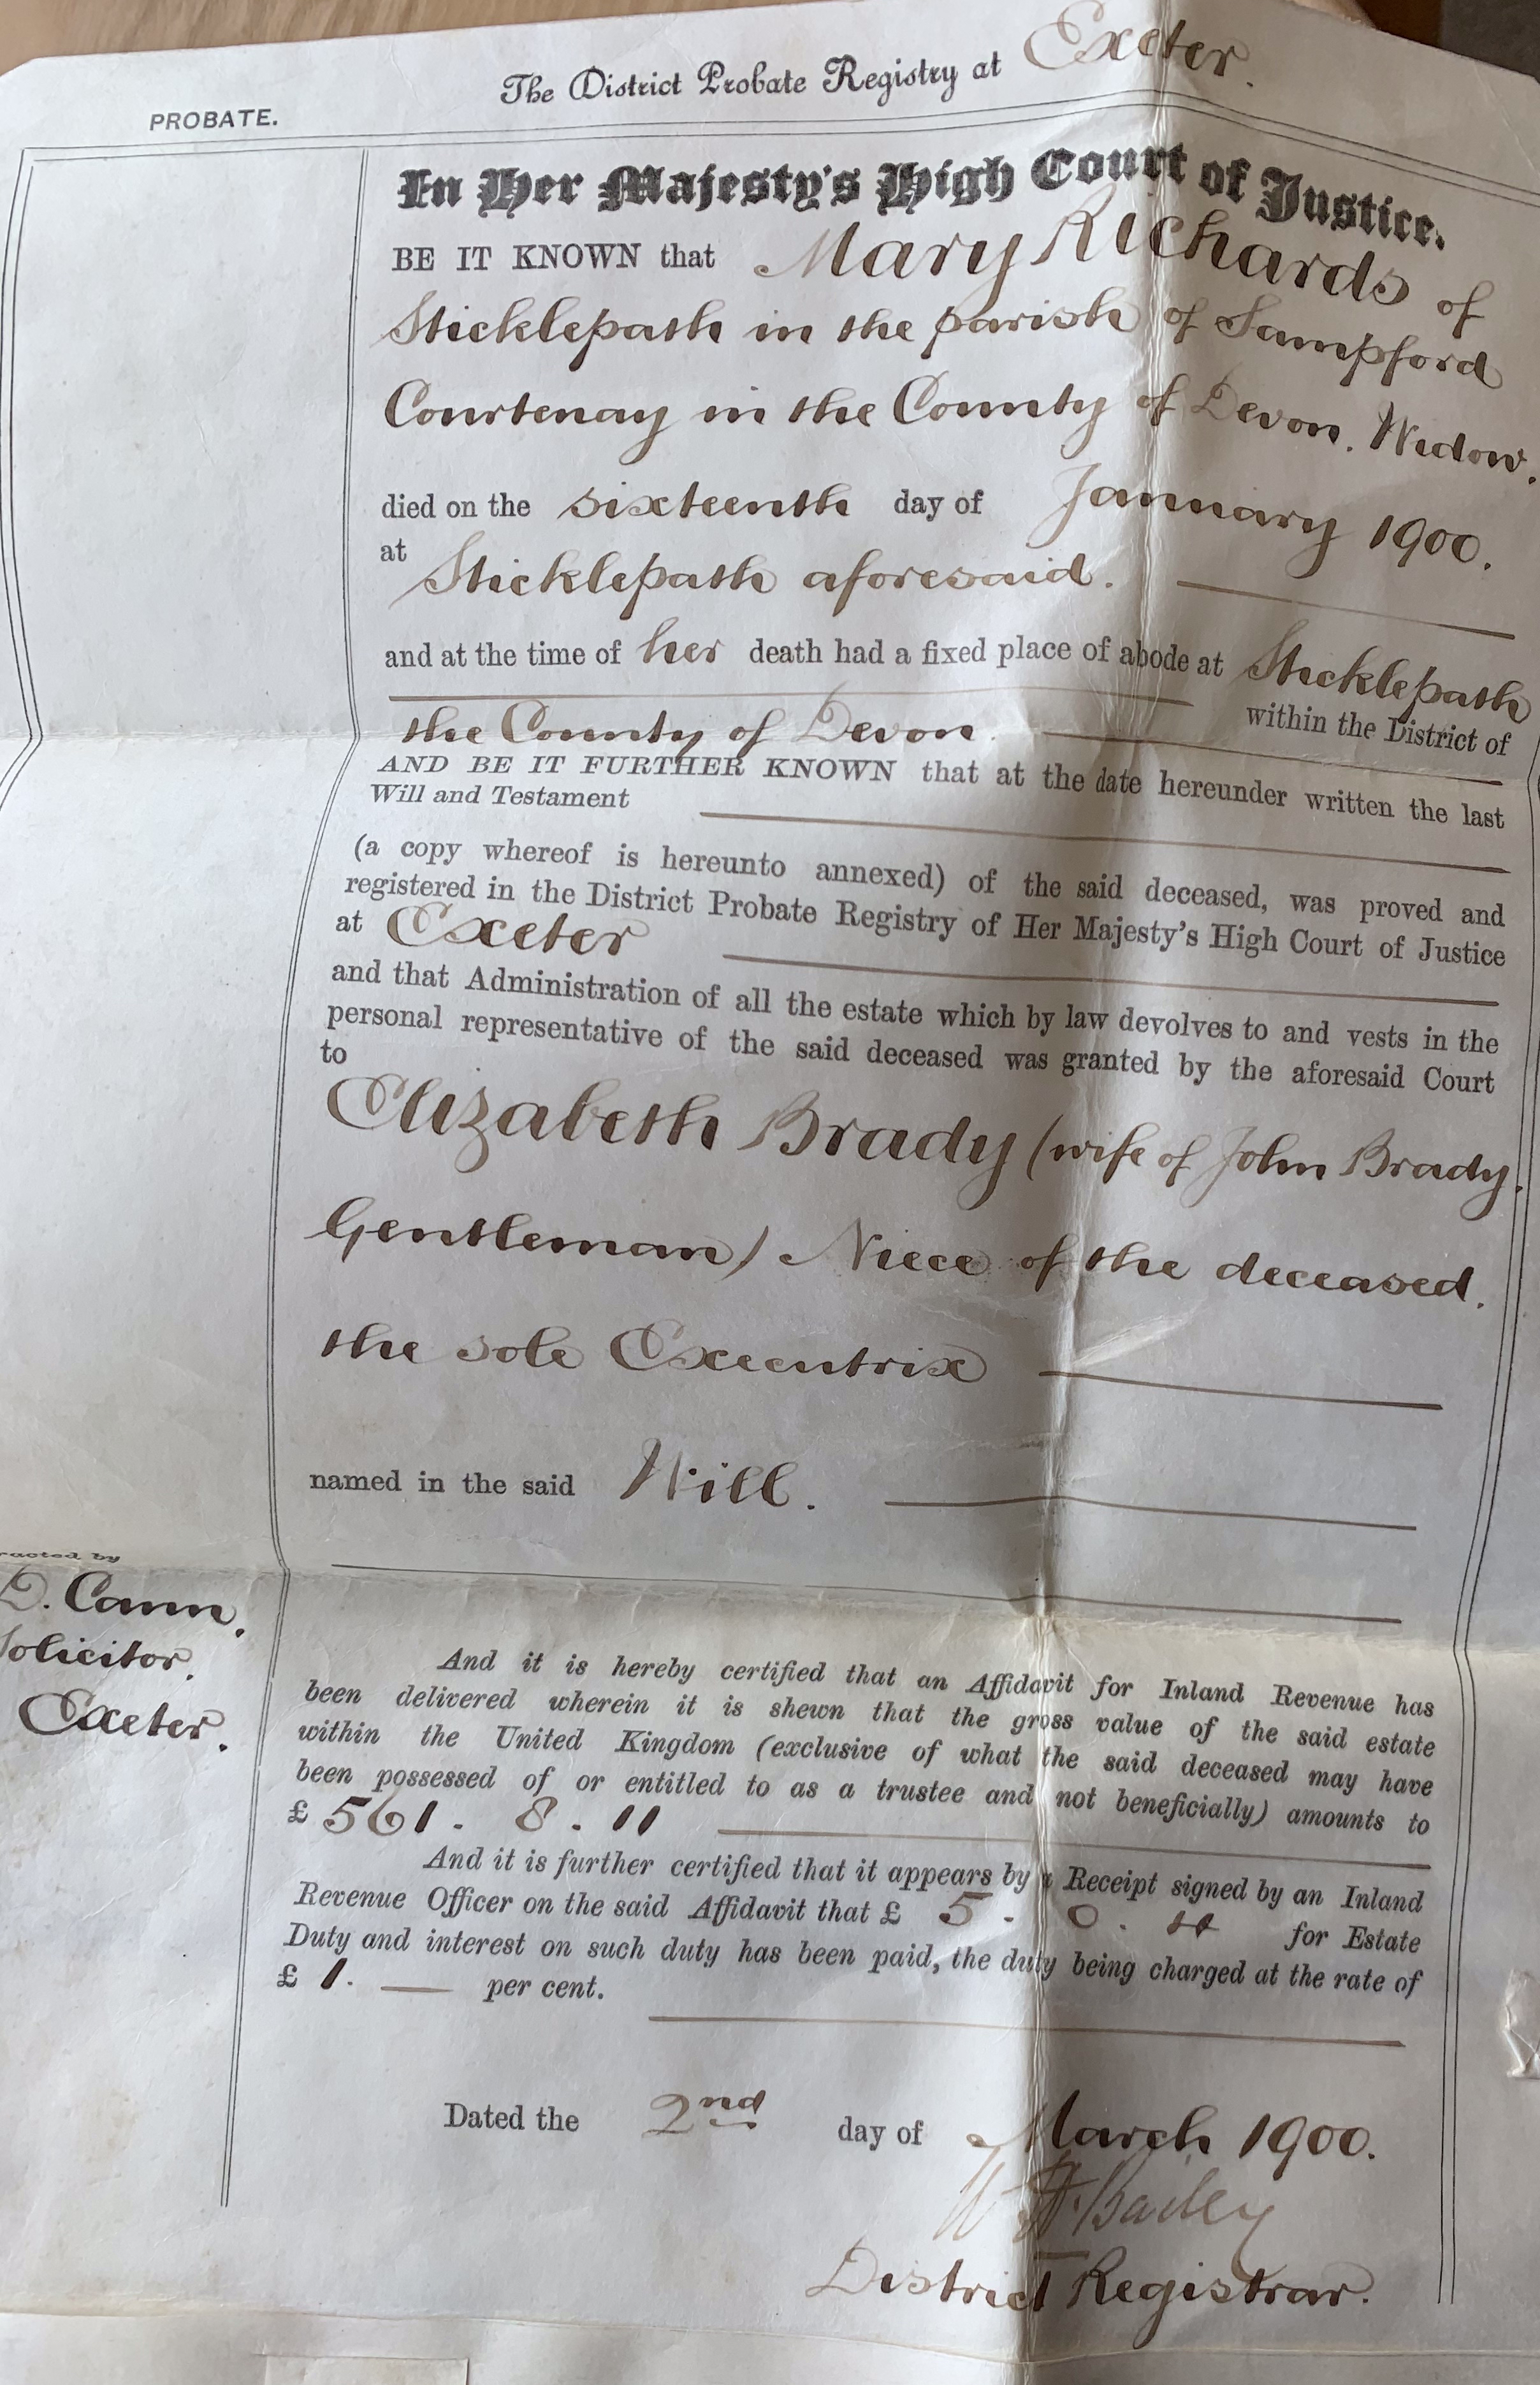 The District Probate Registry at Exeter.
PROBATE.
In Her Majesty's High Court of Justice.
BE IT KNOWN that Mary Richards of
Sticklepath in the parish of Sampford
Courtenay in the County of Devon. Widow.
died on the sixteenth day of January 1900.
at Sticklepath aforesaid.
and at the time of her death had a fixed place of abode at Sticklepath
within the District of
the County of Devon.
AND BE IT FURTHER KNOWN that at the date hereunder written the last
Will and Testament
(a copy whereof is hereunto annexed) of the said deceased, was proved and
registered in the District Probate Registry of Her Majesty's High Court of Justice
at Exeter
and that Administration of all the estate which by law devolves to and vests in the
personal representative of the said deceased was granted by the aforesaid Court
to
Elizabeth Brady (wife of John Brady.
Gentleman) Niece of the deceased.
the sole Executrix
named in the said Will.
racted by
D. Cann.
Solicitor.
Exeter.
And it is hereby certified that an Affidavit for Inland Revenue has
been delivered wherein it is shewn that the gross value of the said estate
within the United Kingdom (exclusive of what the said deceased may have
been possessed of or entitled to as a trustee and not beneficially) amounts to
£ 561. 8. 11
And it is further certified that it appears by a Receipt signed by an Inland
Revenue Officer on the said Affidavit that £ 5. 0. 4 for Estate
Duty and interest on such duty has been paid, the duty being charged at the rate of
£ 1. — per cent.
Dated the 2nd day of March 1900.
Bailey
District Registrar.